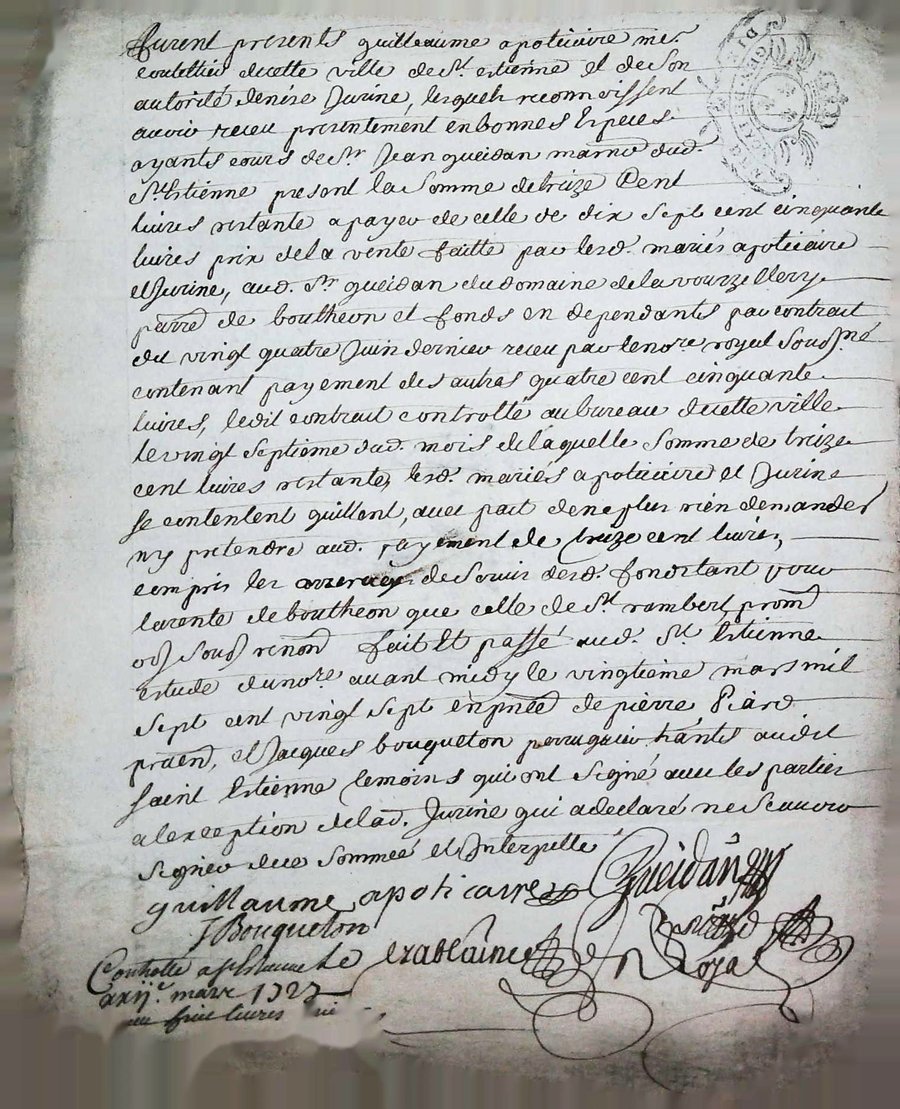 furent presents guilleaume apoticaire me.r
coulettier decette ville de St. estienne et de son
autorité denise Jurine, lesquels reconnoissent
avoir receu presentement en bonnes Especes
ayants cours de Sr. Jean gueidan marné dud.
St. Estienne present la Somme de treize Cent
livres restante a payer de celle de dix sept cent cinquante
livres prix dela vente faitte par lesd. mariés apoticaire
et Jurine, aud. Sr. gueidan du domaine de la vourzellery
parre de boutheon et fonds en dependants par contract
du vingt quatre Juin dernier receu par le nore. royal Sousné
contenant payement des autres quatre cent cinquante
livres, ledit contract controllé au bureau decette ville
le vingt Septieme dud. mois de laquelle Somme de treize
cent livres restante, lesd. mariés apoticaire et Jurine
se contentent quittent, avec pact de ne plus rien demander
ny pretendre aud. payement de treize cent livres,
compris les arrerages de Servis desd. fonds tant pour
la rente de boutheon que celle de St. rambert, prom
obs Sous renon fait Et passé aud. St. Estienne
estude dunore. avant midy le vingtieme mars mil
Sept cent vingt Sept en pnce de pierre
pratien, et Jacques bouqueton perruquier hants audit
saint Estienne temoins qui ont Signé avec les parties
a lexception delad. Jurine qui a declaré ne Scavoir
Signer de ce Sommée et Interpellé
guillaume apoticaire Gueidan
J Bouqueton
Chatelaine Royal
Controllé a St. Estienne le
xxije. mars 1727
livres